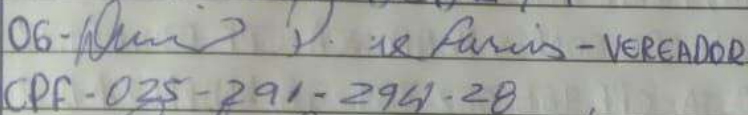 06- V. de Farias - VEREADOR
CPF - 025-291-294-28